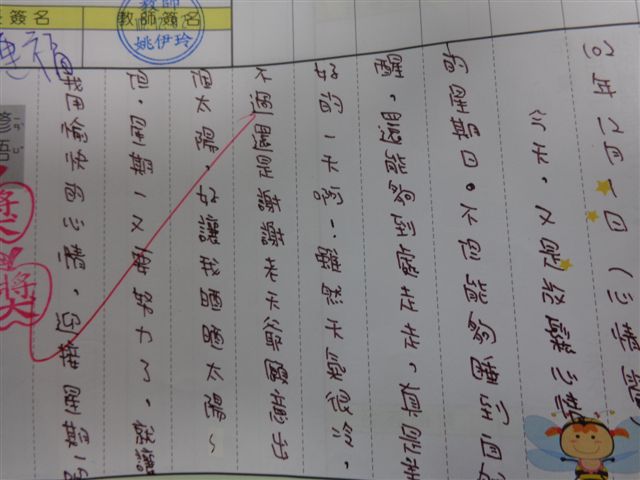 簽名
教師簽名
教師
姚伊玲
102年12月1日(心情篇)
今天,又是放鬆心情
的星期日。不但能夠睡到自
醒,還能夠到處走走,真是
好的一天啊!雖然天氣很冷,
不過還是謝謝老天爺願意出
個太陽,好讓我曬曬太陽~
但,星期一又要努力了,就讓
我用愉快的心情,迎接星期一
語
獎
獎